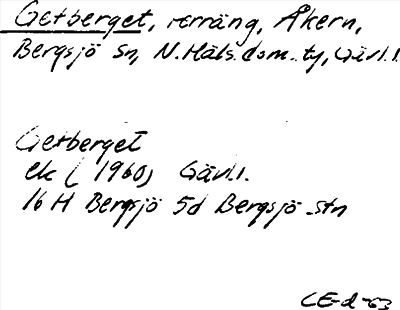 Getberget, terräng, Åkern,
Bergsjö sn, N. Häls. dom. ty, Gävl.l.
Getberget
ek (1960) Gävl.l.
16 H Bergsjö 5d Bergsjö stn
CE-d -63